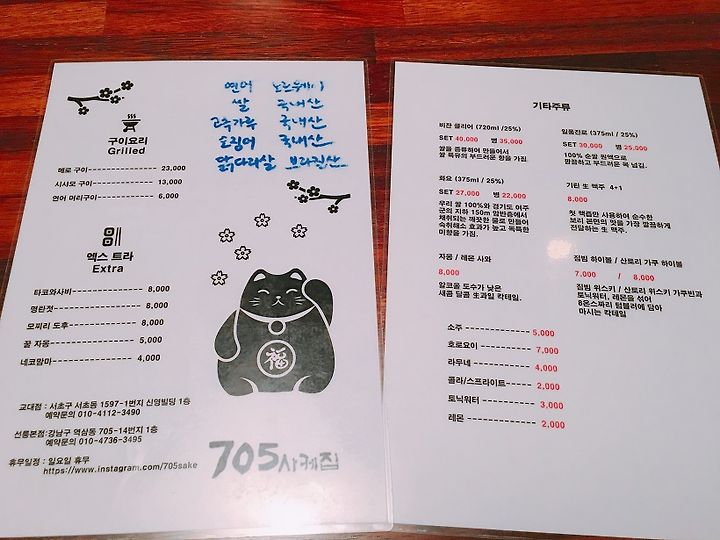 연어 노르웨이
쌀 국내산
고추가루 국내산
오징어 국내산
닭다리살 브라질산
구이요리
Grilled
메로 구이 23,000
시샤모 구이 13,000
연어 머리구이 6,000
엑스 트라
Extra
타코와사비 8,000
명란젓 8,000
모찌리 도후 8,000
꿀 자몽 5,000
네코맘마 4,000
福
교대점 : 서초구 서초동 1597-1번지 신영빌딩 1층
예약문의 010-4112-3490
선릉본점:강남구 역삼동 705-14번지 1층
예약문의 010-4736-3495
휴무일정 : 일요일 휴무
https://www.instagram.com/705sake
705사케집
기타주류
비잔 클리어 (720ml /25%)
SET 40,000 병 35,000
쌀을 증류하여 만들어서
쌀 특유의 부드러운 향을 가짐.
일품진로 (375ml / 25%)
SET 30,000 병 25,000
100% 순쌀 원액으로
깔끔하고 부드러운 목 넘김.
화요 (375ml / 25%)
SET 27,000 병 22,000
우리 쌀 100%와 경기도 여주
군의 지하 150m 암반층에서
채취되는 깨끗한 물로 만들어
숙취해소 효과가 높고 독특한
미향을 가짐.
기린 生 맥주 4+1
8,000
첫 맥즙만 사용하여 순수한
보리 본연의 맛을 가장 깔끔하게
전달하는 生 맥주.
자몽 / 레몬 사와
8,000
알코올 도수가 낮은
새콤 달콤 生과일 칵테일.
짐빔 하이볼 / 산토리 가쿠 하이볼
7,000 / 8,000
짐빔 위스키 / 산토리 위스키 가쿠빈과
토닉워터, 레몬을 섞어
8온스짜리 텀블러에 담아
마시는 칵테일
소주 5,000
호로요이 7,000
라무네 4,000
콜라/스프라이트 2,000
토닉워터 3,000
레몬 2,000